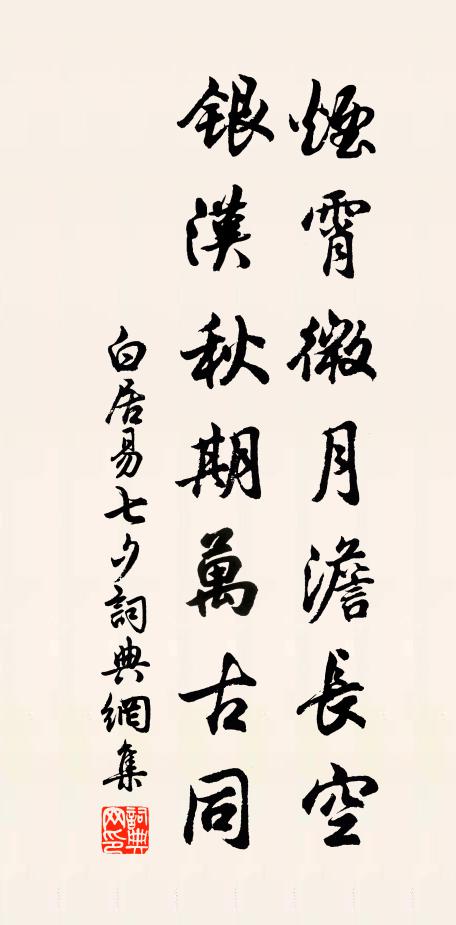 煙霄微月澹長空
銀漢秋期萬古同
白居易七夕詞典網集
詞典網印